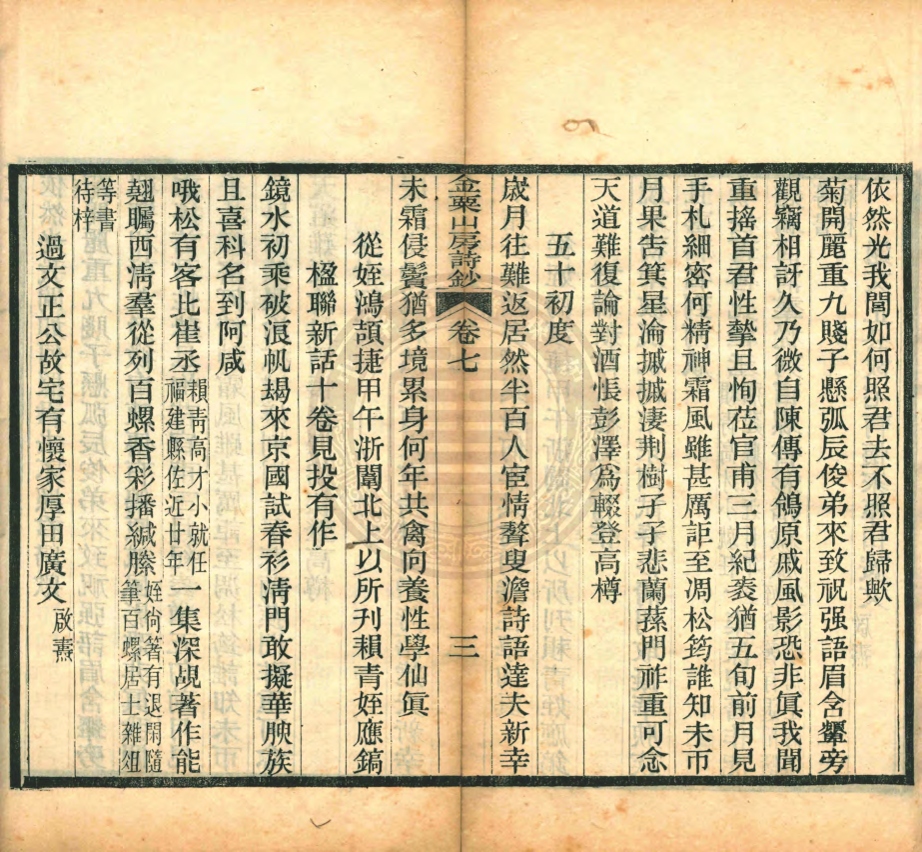 依然光我閭如何照君去不照君歸歟
菊開麗重九賤子懸弧辰俊弟來致祝强語眉含顰旁
觀竊相訝久乃微自陳傳有鴒原戚風影恐非眞我聞
重搖首君性摯且恂莅官甫三月紀袠猶五旬前月見
手札細密何精神霜風雖甚厲詎至凋松筠誰知未帀
月果告箕星淪摵摵淒荆樹孑孑悲蘭蓀門祚重可念
天道難復論對酒悵彭澤爲輟登高樽
五十初度
歲月往難返居然半百人宦情聾叟澹詩語達夫新幸
未霜侵鬢猶多境累身何年共禽向養性學仙眞
金粟山房詩鈔 卷七 三
從姪鴻頡捷甲午浙闈北上以所刊賴青姪應鎬
楹聯新話十卷見投有作
鏡水初乘破浪帆朅來京國試春衫淸門敢擬華腴族
且喜科名到阿咸
哦松有客比崔丞賴靑高才小就任福建縣佐近廿年一集深覘著作能
翹矚西淸羣從列百螺香彩播緘縢姪尙箸有退閑隨筆百螺居士雜俎
等書待梓
過文正公故宅有懷家厚田廣文啟燾